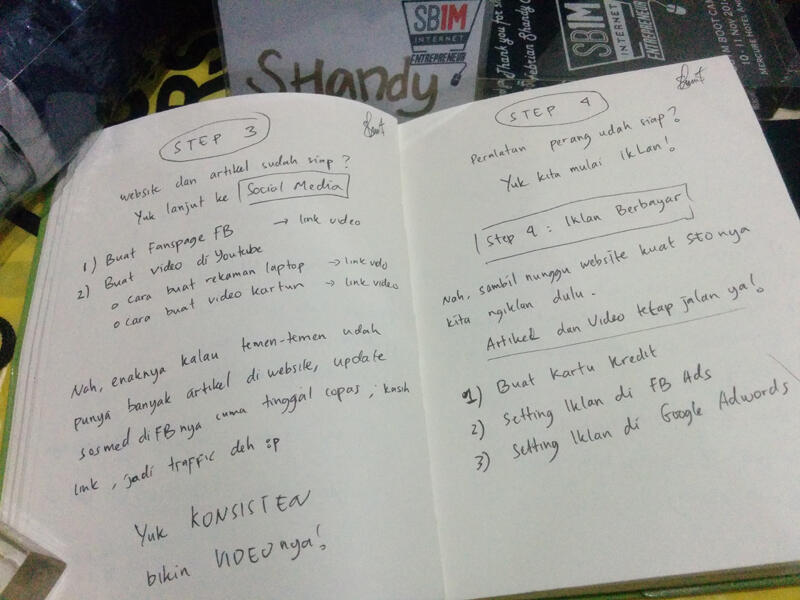 SB1M
INTERNET
ENTREPRENEUR
SHandy
Thank you for
SB1M
INTERNET
ENTREPRENEUR
M BOOT CAM
10 - 11 NOV 201
STEP 3
website dan artikel sudah siap?
Yuk lanjut ke Social Media
1) Buat Fanspage FB → link video
2) Buat video di Youtube
o cara buat rekaman laptop → link vdo
o cara buat video kartun → link video
Nah, enaknya kalau temen-temen udah
punya banyak artikel di website, update
sosmed di FBnya cuma tinggal copas, kasih
link, jadi traffic deh :p
Yuk KONSISTEN
bikin VIDEOnya!
STEP 4
Peralatan perang udah siap?
Yuk kita mulai Iklan!
Step 4 : Iklan Berbayar
Nah, sambil nunggu website kuat SEOnya
kita ngiklan dulu.
Artikel dan Video tetap jalan ya!
1) Buat Kartu Kredit
2) Setting Iklan di FB Ads
3) Setting Iklan di Google Adwords